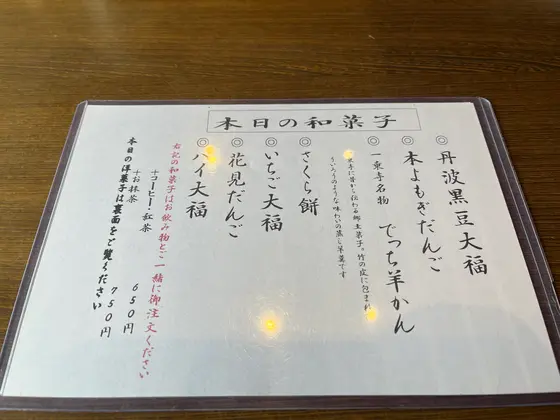 本日の和菓子
◎丹波黒豆大福
◎本よもぎだんご
◎一乗寺名物 でっち羊かん
昔から伝わる郷土菓子。竹の皮に包まれ
ういろうのような味わいの蒸し羊羹です
◎さくら餅
◎いちご大福
◎花見だんご
◎パイ大福
右記の和菓子はお飲み物とご一緒に御注文ください
+コーヒー・紅茶 650円
+お抹茶 750円
本日の洋菓子は裏面をご覧ください